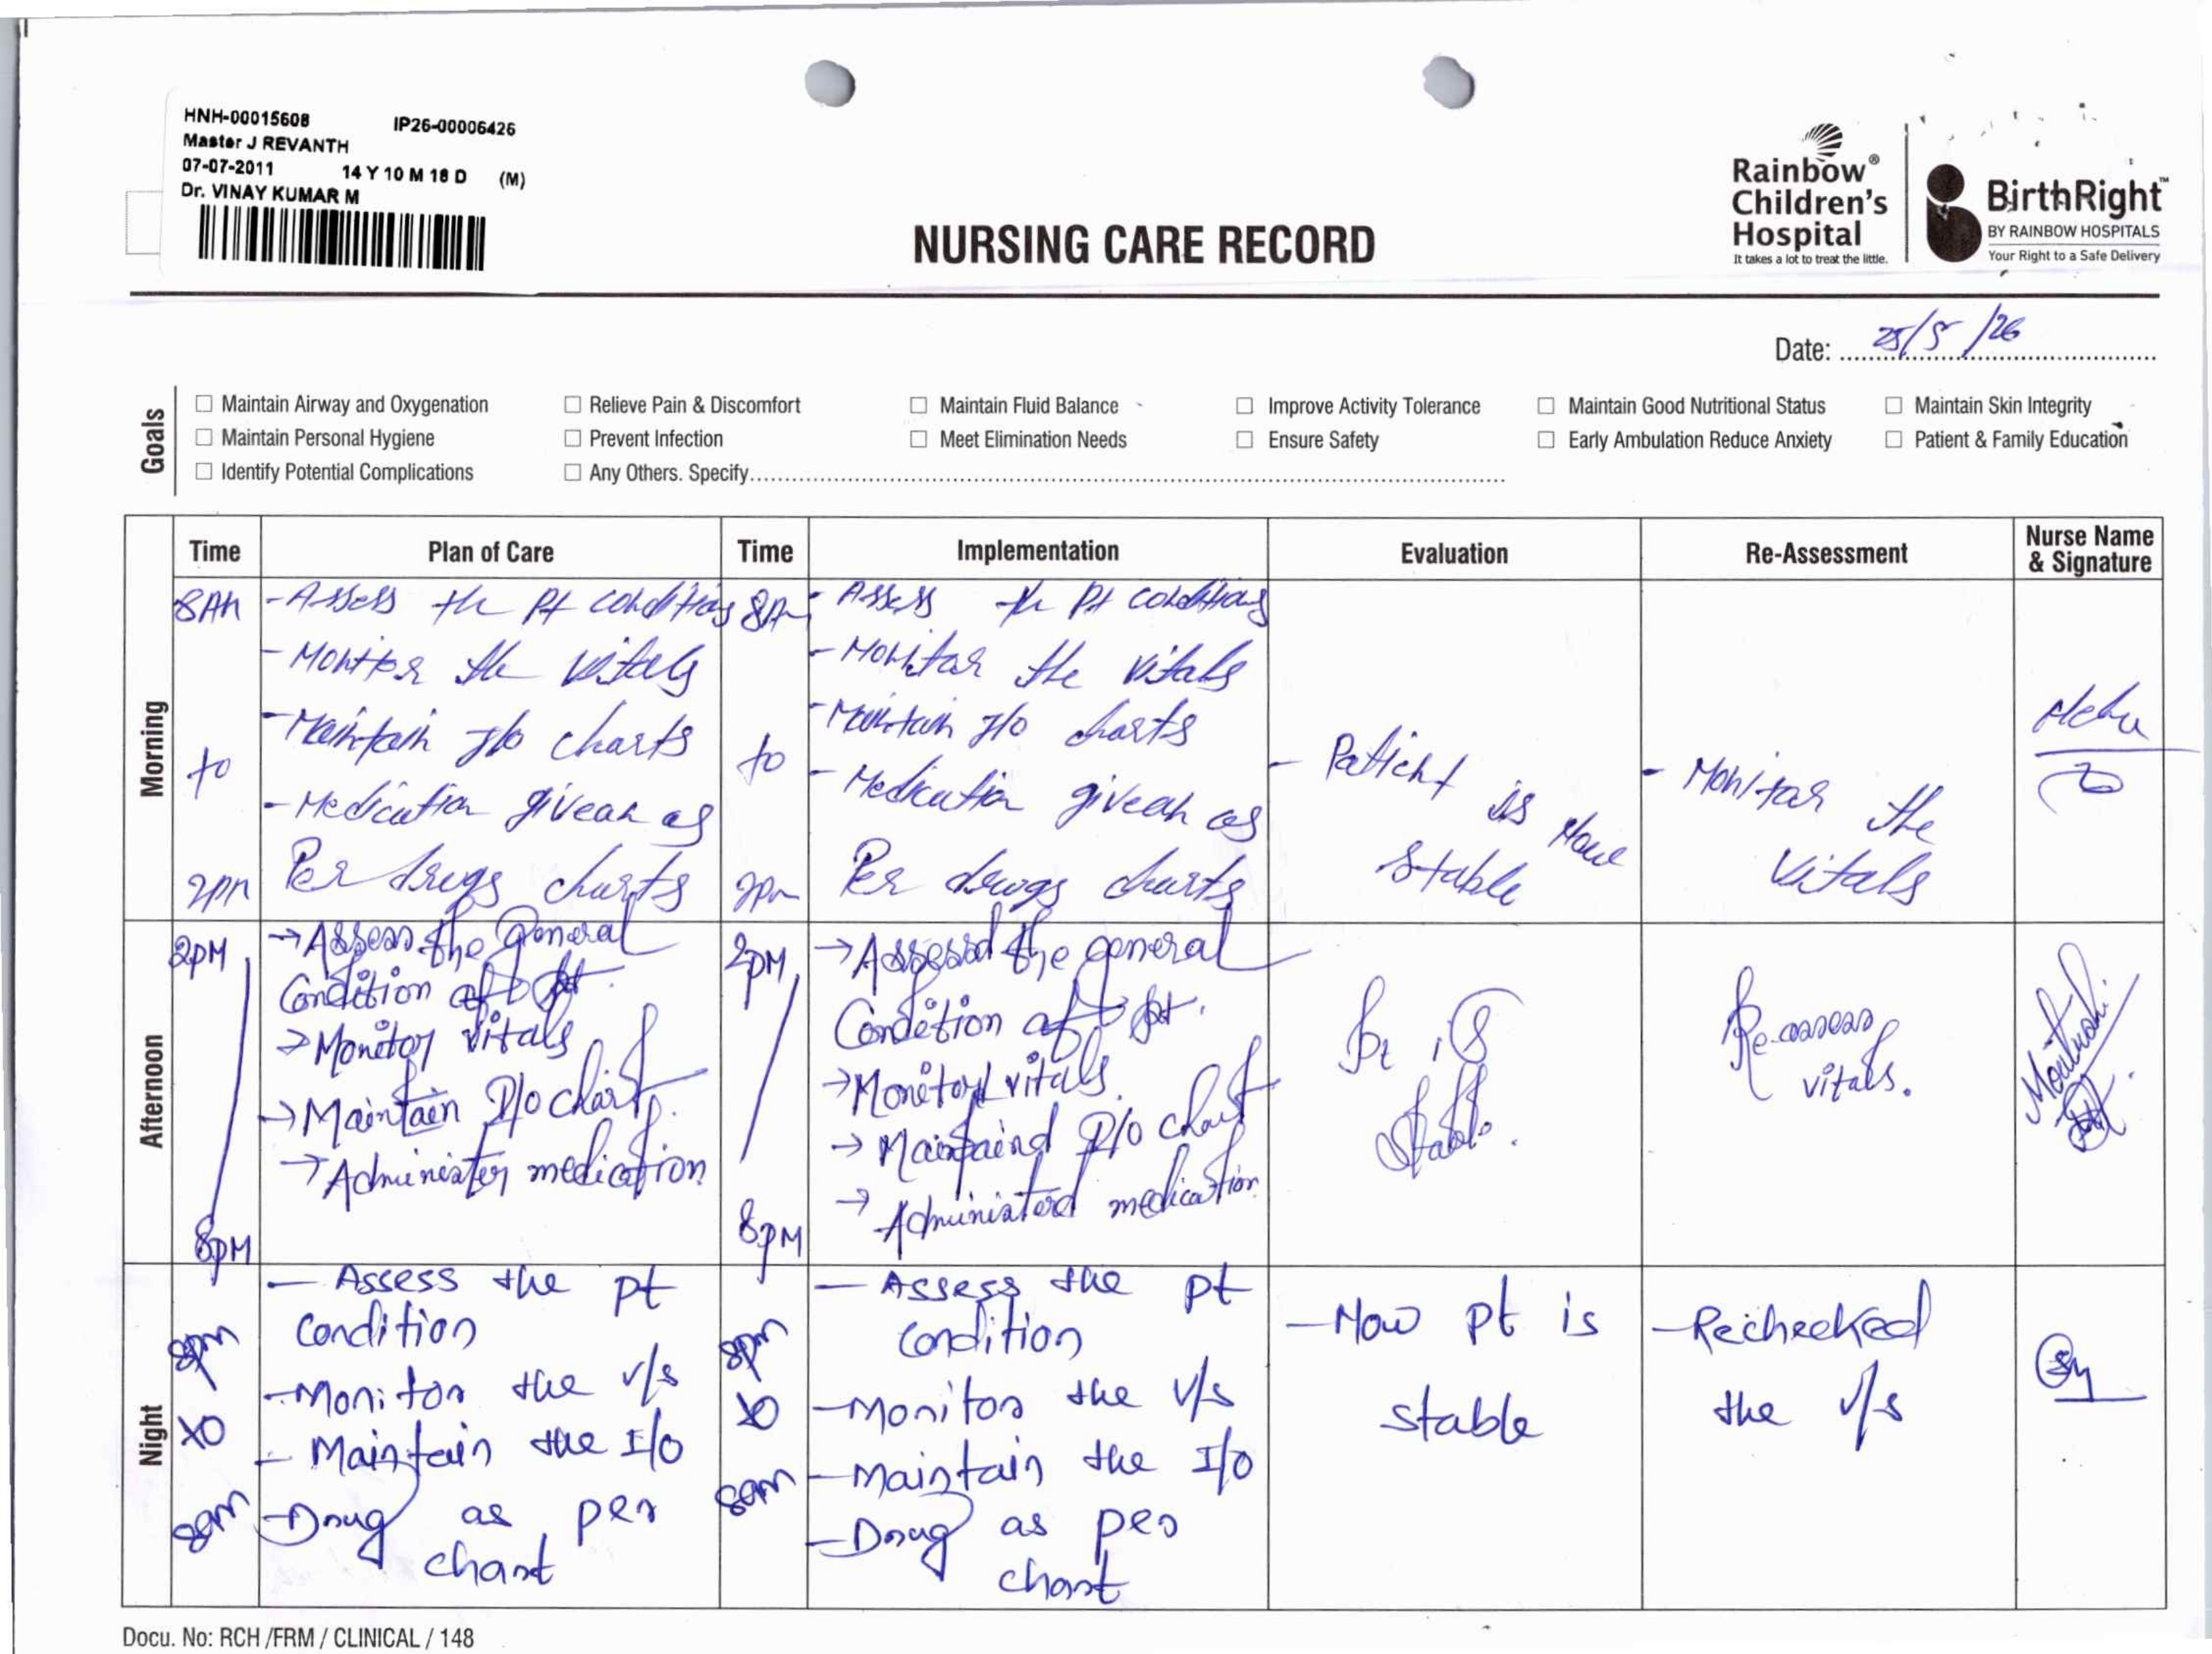 HNH-00015608 IP26-00006426
Master J REVANTH
07-07-2011 14 Y 10 M 18 D (M)
Dr. VINAY KUMAR M
NURSING CARE RECORD
Rainbow®
Children's
Hospital
It takes a lot to treat the little.
BirthRight™
BY RAINBOW HOSPITALS
Your Right to a Safe Delivery
Date: 25/5/26
Goals
☐ Maintain Airway and Oxygenation ☐ Relieve Pain & Discomfort ☐ Maintain Fluid Balance ☐ Improve Activity Tolerance ☐ Maintain Good Nutritional Status ☐ Maintain Skin Integrity
☐ Maintain Personal Hygiene ☐ Prevent Infection ☐ Meet Elimination Needs ☐ Ensure Safety ☐ Early Ambulation Reduce Anxiety ☐ Patient & Family Education
☐ Identify Potential Complications ☐ Any Others. Specify
Time Plan of Care Time Implementation Evaluation Re-Assessment Nurse Name
& Signature
Morning
8AM
to
2pm
- Assess the Pt conditions
- Monitor the vitals
- Maintain I/o charts
- Medication givean as
Per drugs charts
8Am
to
2pm
- Assess the Pt conditions
- Monitar the vitals
- Maintain I/o charts
- Medication givean as
Per drugs charts
- Patient is Now
stable
- Monitar the
vitals
Afternoon
2pM
8pM
→ Assess the general
Condition of pt.
→ Monitor vitals
→ Maintain I/o chart.
→ Administer medication
2pM
8pM
→ Assessd the general
Condition of pt.
→ Monitord vitals.
→ Maintaind I/o chart
→ Administerd medication
Pt is
stable.
Re-assess
vitals.
Night
8pm
to
8am
- Assess the pt
condition
- Monitor the v/s
- Maintain the I/o
- Drug as per
chart
8pm
to
8am
- Assess the pt
condition
- Monitor the v/s
- Maintain the I/o
- Drug as per
chart
- Now pt is
stable
- Rechecked
the v/s
Docu. No: RCH /FRM / CLINICAL / 148